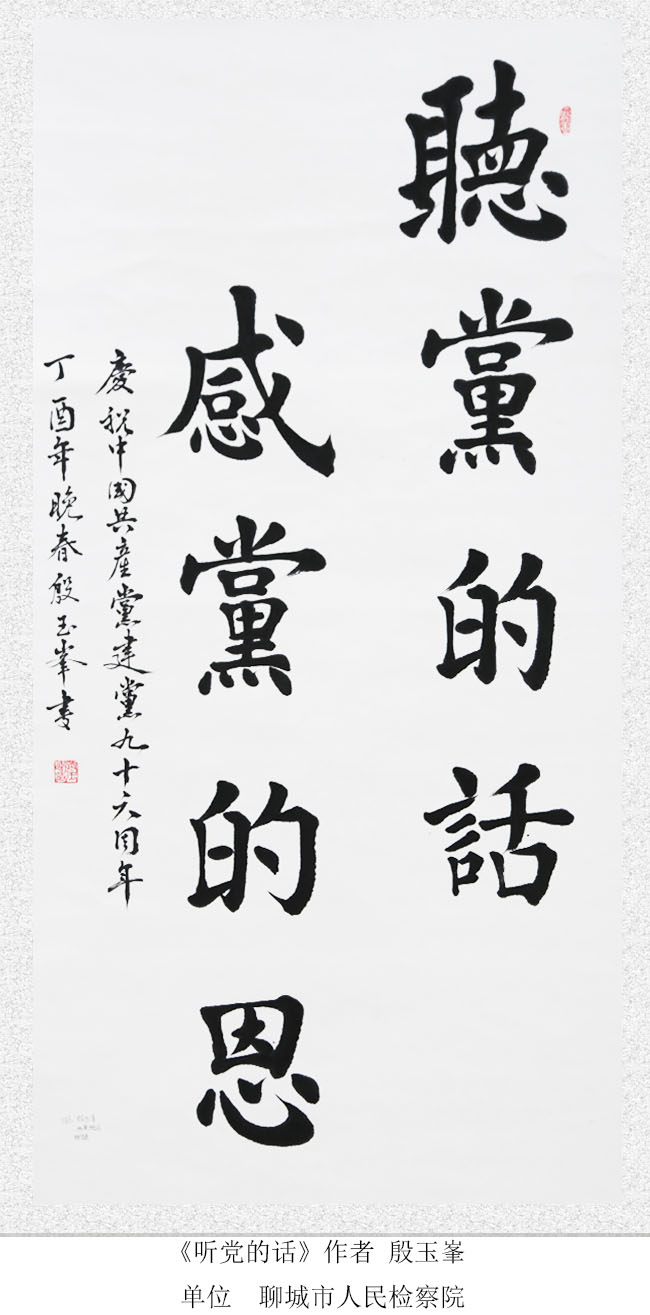 聽黨的話
感黨的恩
慶祝中國共產黨建黨九十六周年
丁酉年晚春殷玉峯书
《听党的话》作者 殷玉峯
单位 聊城市人民检察院